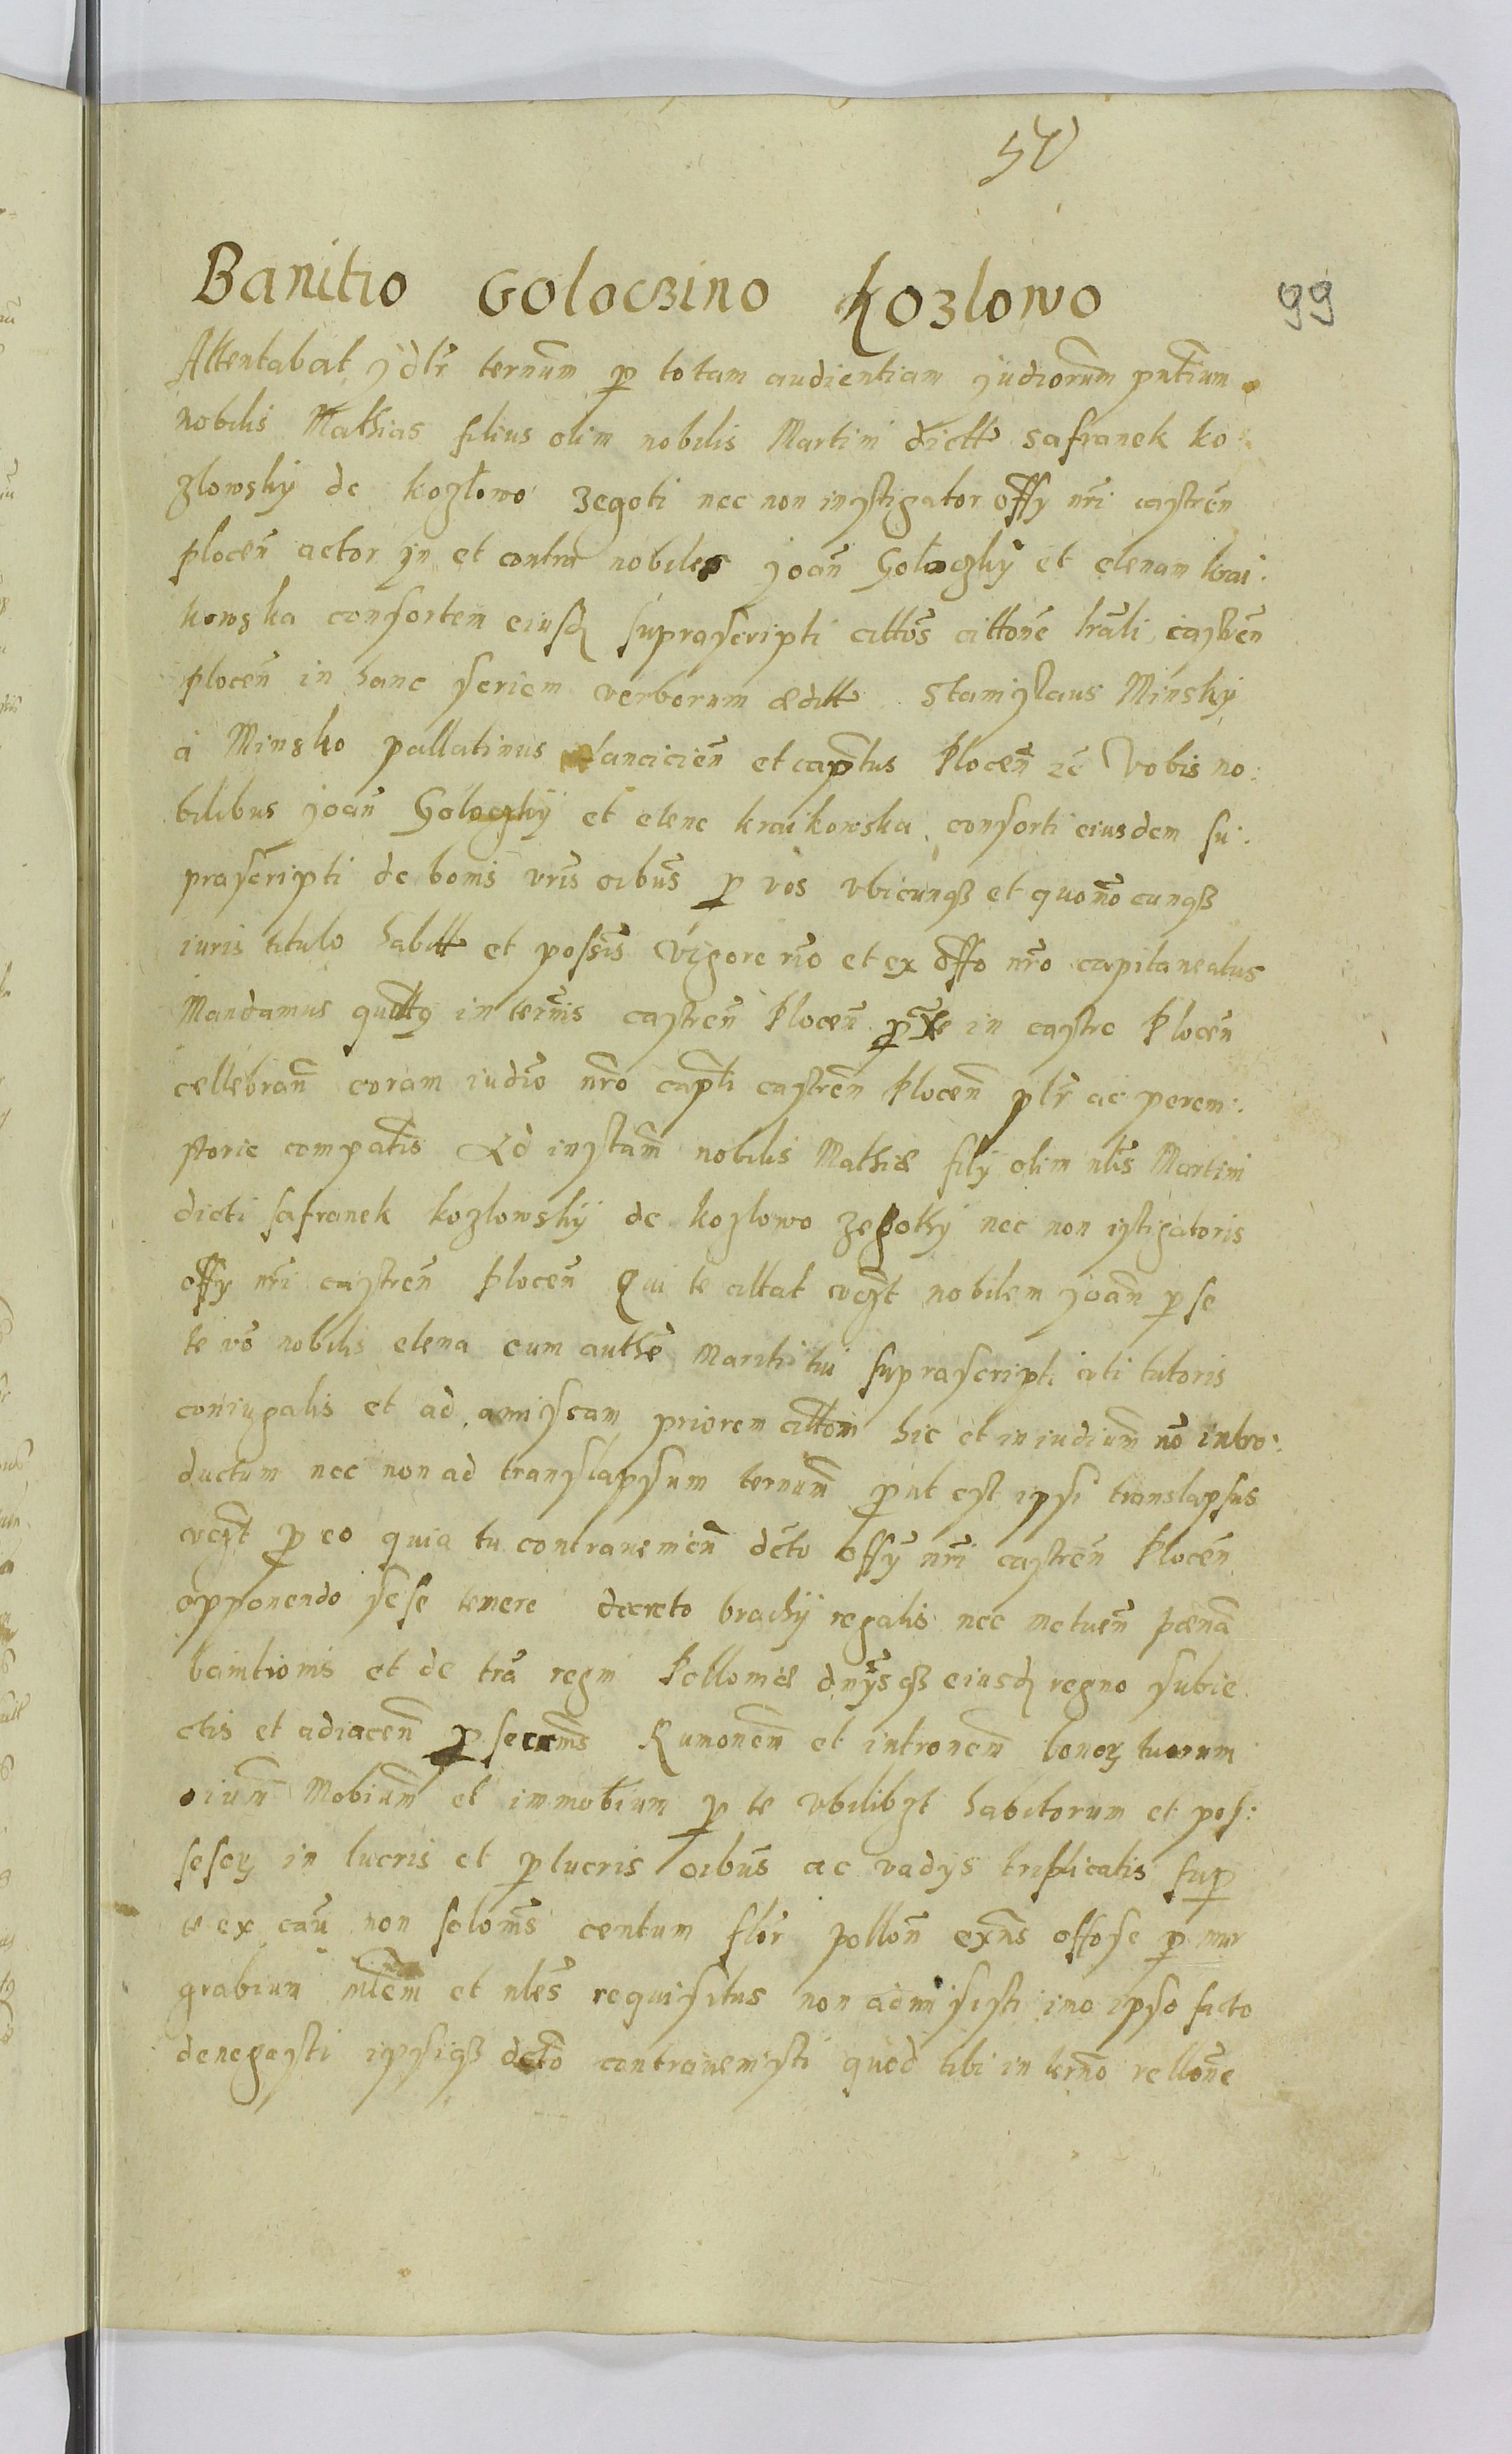 50
Banitio Goloczino Kozlowo
99
Attentabat ẏdlr̃ ternũm p totam audientiam ẏudiorũm pñtium
nobilis Mathias filius olim nobilis Martini dictt safranek ko
zlowskẏ de kozłowo zegoti nec non instigator offẏ nr̃i castreñ
ploceñ actor ẏn et contra nobiles ẏoañ Goloczkẏ et elenam krai:
kowska consortem eiusdꝫ suprascripti cittõs cittonẽ lr̃ali castreñ
ploceñ in hanc seriem verborum æditt Stanislaus Minskẏ
a Minsko pallatinus lanciciẽn et captus Ploceñ zc̃ Vobis no:
bilibus ẏoañ Goloczkÿ et elene kraikowska consorti eiusdem su:
prascripti de bonis vr̃is oibũs p vos vbicunqꝫ et quonõcunqꝫ
iuris titulo habitt et possis̃ Vigore nr̃o et ex offo nr̃o capitaneatus
Mandamus quattꝫ in ternĩs castreñ Ploceñ in castro Ploceñ
cellebrañ coram iudĩo nr̃o capti castreñ Ploceñ plr̃ ac perem:
ptorie compatis Ad instam̃ nobilis Mathiæ filẏ olim nlis̃ Martini
dicti safranek kozlowskÿ de kozlowo zegotkẏ nec non istigatoris
offẏ nr̃i castreñ Ploceñ Qui te cittat vczt nobilem ẏoañ p se
te vo nobilis elena cum authẽ Mariti tui suprascripti uti tutoris
coniugalis et ad amissam priorem cittom̃ hic et in iudiũm nõ intro:
ductum nec non ad translapsum ternũm put est ipsi translapsus
vczt p eo quia tu contraveniẽn dc̃to offẏ nr̃i castreñ Ploceñ
opponendo sese temere decreto brachÿ regalis nec metueñ pænã
banitionis et de trã regni Polloniæ dnẏsqꝫ eiusdꝫ regno subie
ctis et adiaceñ Rumoneñ et intronem̃ bonoꝝ tuorum
oiũm Mobiũm et immobiũm p te vbilibꝫt habitorum et pos:
sesoꝝ in lucris et plucris oibũs ac vadẏs triplicatis sup
te ex caũ non soloñis centum flor̃ pollõn exñs offose p mur
grabium et nlẽs requisitus non admisisti imo ipso facto
denegasti ipsiqꝫ dc̃to contravenisti quod tibi in terño rellõne